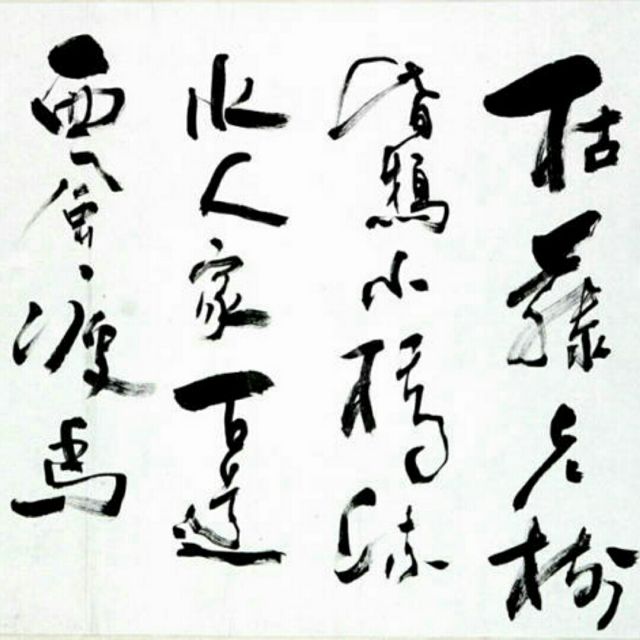 枯藤老樹
昏鴉小橋流
水人家古道
西風瘦馬